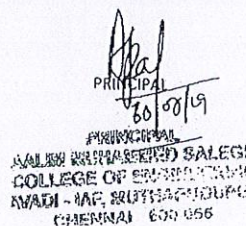 PRINCIPAL
30/09/19
PRINCIPAL
AALIM MUHAMMED SALEGH
COLLEGE OF ENGINEERING
AVADI - IAF, MUTHAPUDUPET
CHENNAI 600 055